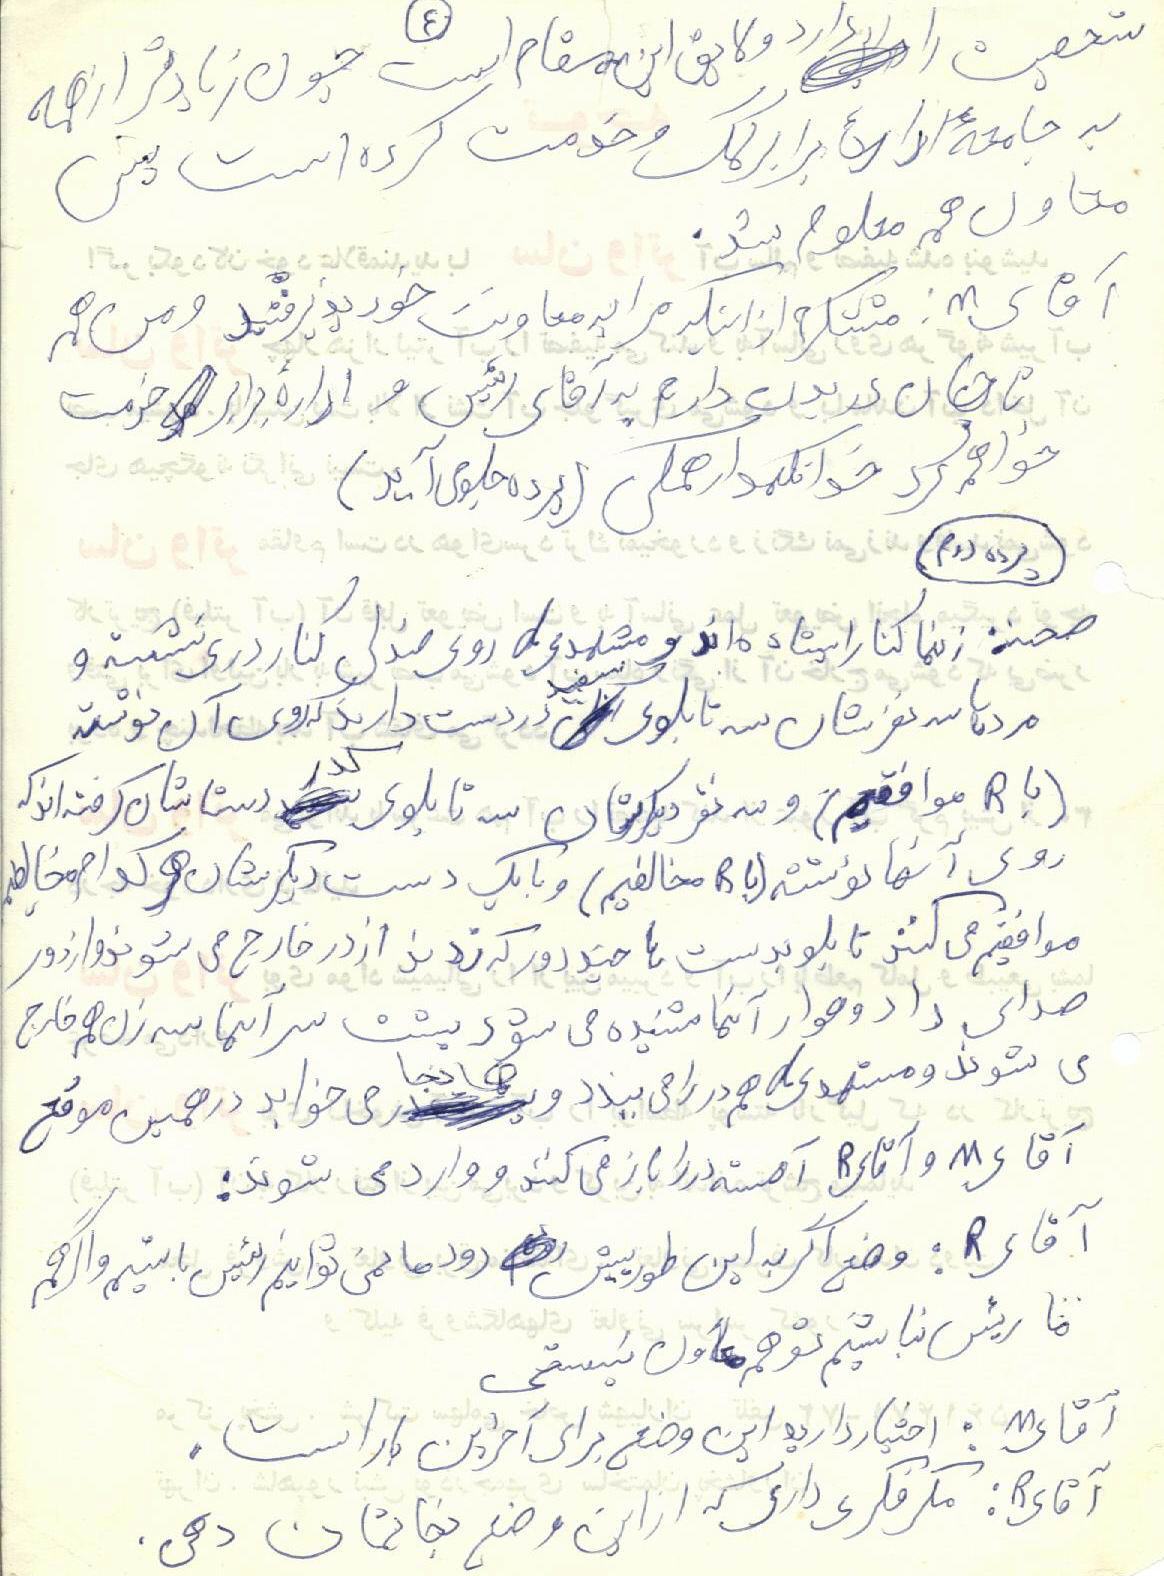 ٤
شخصیت را دارد و لایق این مقام است چون زیادتر از همه
به جامعهٔ ادارهٔ برابر کمک و خدمت کرده است پس
معاون هم معلوم شد.
آقای M: متشکرم از اینکه مرا به معاونت خود پذیرفتید و من هم
تا جان در بدن دارم به آقای رئیس و ادارهٔ برابر خدمت
خواهم کرد خدانگهدار همگی (پرده جلو می آید)
پرده دوم
صحنه: زنها کنار ایستاده اند و مشهدی روی صندلی کنار دری نشسته و
مردها سه نفرشان سه تابلوی سفید در دست دارند که روی آن نوشته
(با R موافقیم) و سه نفر دیگرشان سه تابلوی کدر دستشان گرفته اند که
روی آنها نوشته (با R مخالفیم) و با یک دست دیگرشان هر کدام مخالفیم
موافقیم می کنند تابلو بدست تا چند دور که زدند از در خارج می شوند و از دور
صدای داد و هوار آنها شنیده می شود پشت سر آنها سه زن هم خارج
می شوند و مشهدی هم در را می بندد و همانجا می خوابد در همین موقع
آقای M و آقای R آهسته در را باز می کنند و وارد می شوند:
آقای R: وضع اگر به این طور پیش رود ما نمی توانیم رئیس باشیم و اگر هم
ما رئیس نباشیم تو هم معاون نیستی
آقای M: اختیار دارید این وضع برای آخرین بار است.
آقای R: مگر فکری داری که از این وضع نجاتمان دهی.